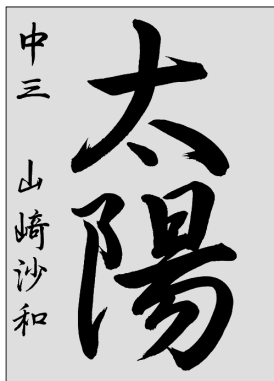 太陽
中三 山崎沙和